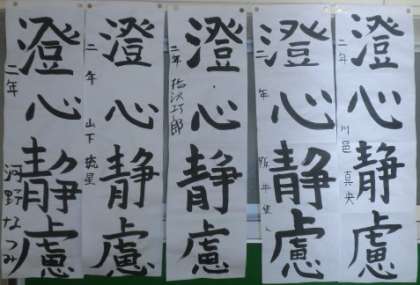 澄心静慮
二年 川邑真央
澄心静慮
二年
澄心静慮
二年
澄心静慮
二年 山下琉星
澄心静慮
二年 河野なつみ